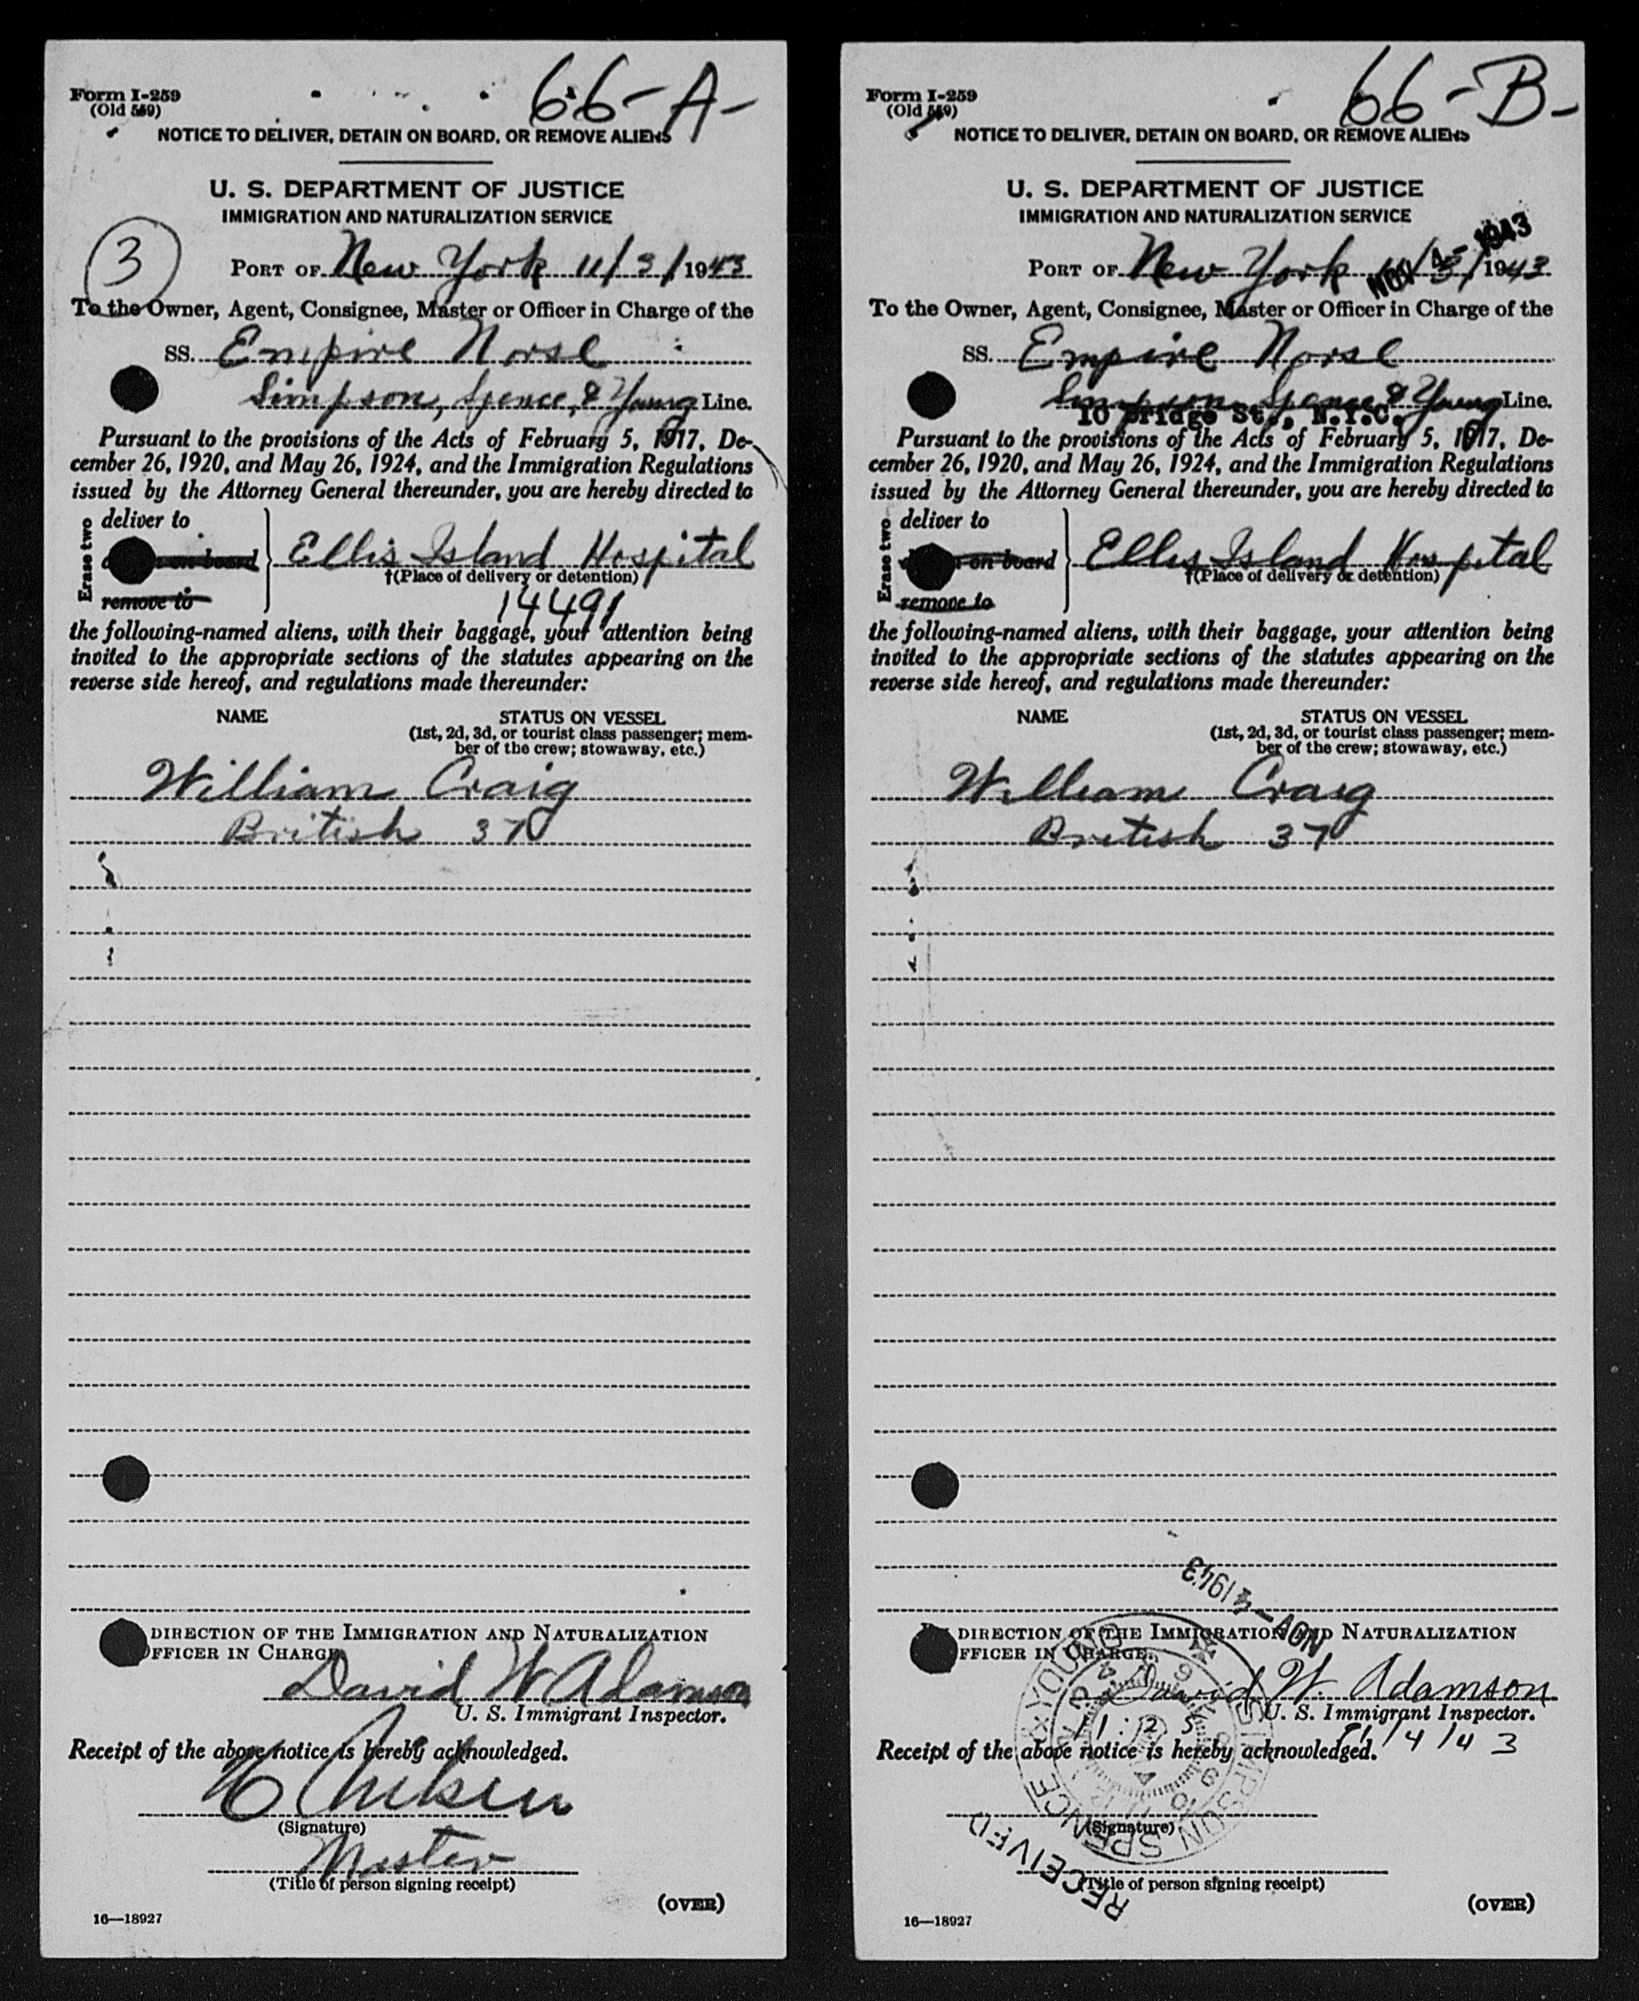 66-A-
Form I-259
(Old 559)
NOTICE TO DELIVER, DETAIN ON BOARD, OR REMOVE ALIENS
U. S. DEPARTMENT OF JUSTICE
IMMIGRATION AND NATURALIZATION SERVICE
3
PORT OF New York 11/3/1943
To the Owner, Agent, Consignee, Master or Officer in Charge of the
SS. Empire Norse
Simpson, Spence, & Young Line.
Pursuant to the provisions of the Acts of February 5, 1917, De-
cember 26, 1920, and May 26, 1924, and the Immigration Regulations
issued by the Attorney General thereunder, you are hereby directed to
Erase two
deliver to
on board
remove to
Ellis Island Hospital
†(Place of delivery or detention)
14491
the following-named aliens, with their baggage, your attention being
invited to the appropriate sections of the statutes appearing on the
reverse side hereof, and regulations made thereunder:
NAME STATUS ON VESSEL
(1st, 2d, 3d, or tourist class passenger; mem-
ber of the crew; stowaway, etc.)
William Craig
British 37
DIRECTION OF THE IMMIGRATION AND NATURALIZATION
OFFICER IN CHARGE
David W Adamson
U. S. Immigrant Inspector.
Receipt of the above notice is hereby acknowledged.
(Signature)
Master
(Title of person signing receipt)
(OVER)
16—18927
66-B-
Form I-259
(Old 559)
NOTICE TO DELIVER, DETAIN ON BOARD, OR REMOVE ALIENS
U. S. DEPARTMENT OF JUSTICE
IMMIGRATION AND NATURALIZATION SERVICE
NOV 4- 1943
PORT OF New York 11/3/1943
To the Owner, Agent, Consignee, Master or Officer in Charge of the
SS. Empire Norse
Simpson Spence & Young Line.
10 Bridge St., N.Y.C.
Pursuant to the provisions of the Acts of February 5, 1917, De-
cember 26, 1920, and May 26, 1924, and the Immigration Regulations
issued by the Attorney General thereunder, you are hereby directed to
Erase two
deliver to
on board
remove to
Ellis Island Hospital
†(Place of delivery or detention)
the following-named aliens, with their baggage, your attention being
invited to the appropriate sections of the statutes appearing on the
reverse side hereof, and regulations made thereunder:
NAME STATUS ON VESSEL
(1st, 2d, 3d, or tourist class passenger; mem-
ber of the crew; stowaway, etc.)
William Craig
British 37
NOV-4 1943
DIRECTION OF THE IMMIGRATION AND NATURALIZATION
OFFICER IN CHARGE.
David W. Adamson
U. S. Immigrant Inspector.
11:25 11/4/43
Receipt of the above notice is hereby acknowledged.
SIMPSON SPENCE & YOUNG
RECEIVED
(Signature)
(Title of person signing receipt)
(OVER)
16—18927